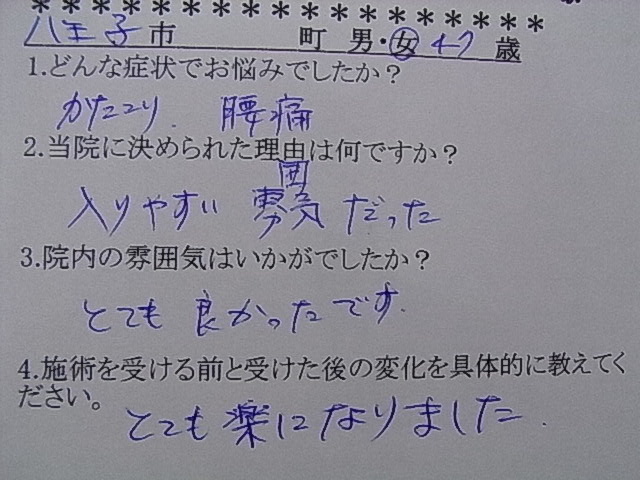 ＊＊＊＊＊＊＊＊＊＊＊＊＊＊＊＊＊＊＊＊
八王子市 町 男・女 47歳
1.どんな症状でお悩みでしたか？
かたこり. 腰痛
2.当院に決められた理由は何ですか？
入りやすい 雰囲気だった
3.院内の雰囲気はいかがでしたか？
とても良かったです.
4.施術を受ける前と受けた後の変化を具体的に教えてく
ださい。
とても楽になりました.